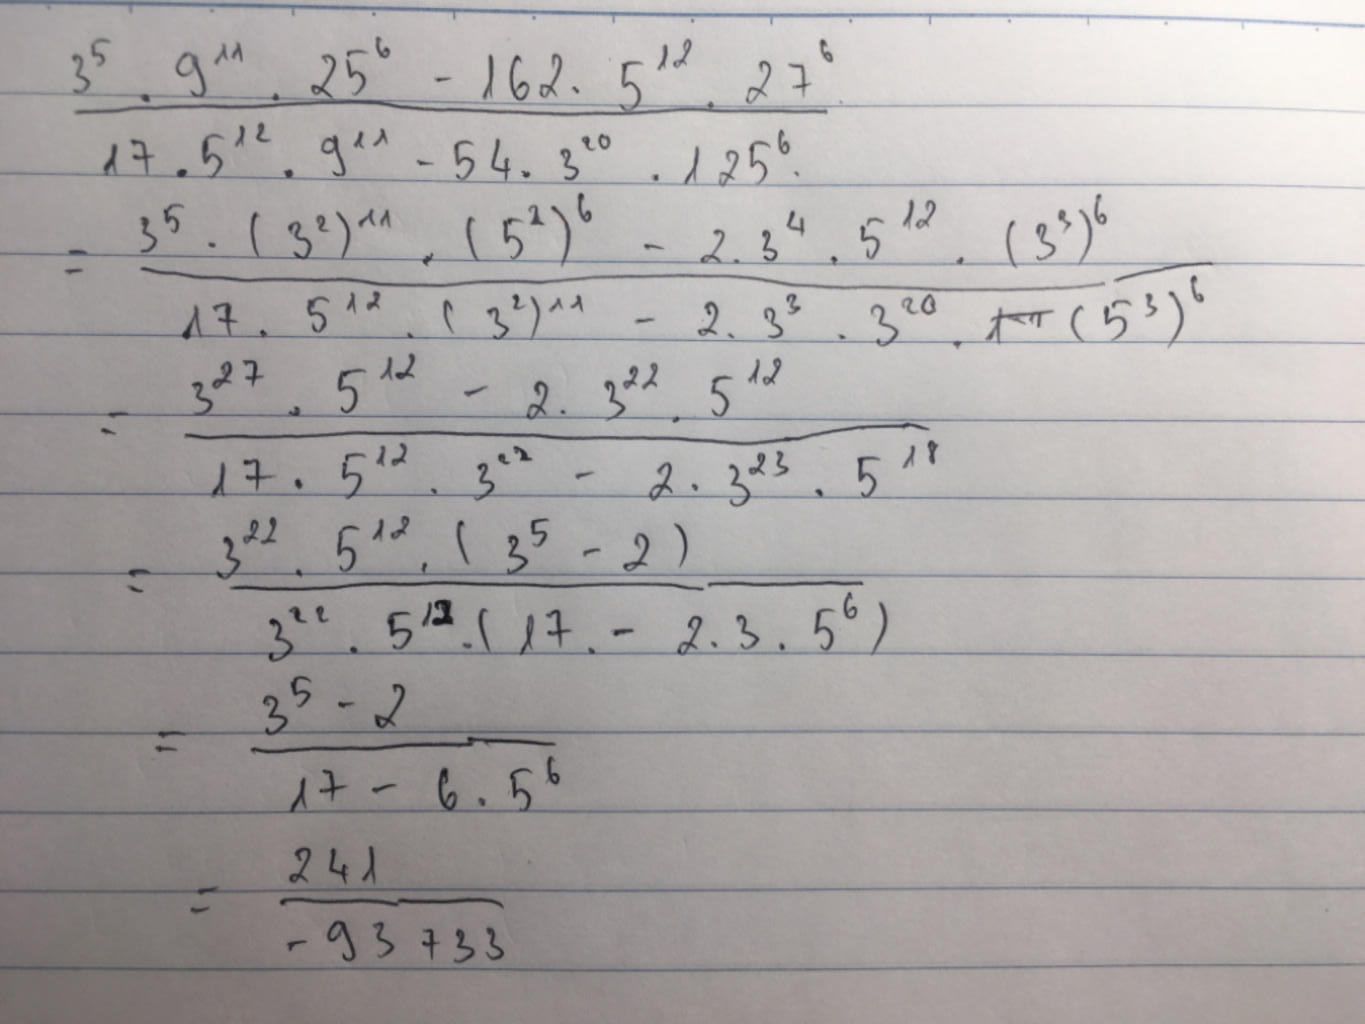 3⁵ . 9¹¹ . 25⁶ - 162 . 5¹² . 27⁶
17 . 5¹² . 9¹¹ - 54 . 3²⁰ . 125⁶ .
= 3⁵ . (3²)¹¹ . (5²)⁶ - 2 . 3⁴ . 5¹² . (3³)⁶
17 . 5¹² . (3²)¹¹ - 2 . 3³ . 3²⁰ . (5³)⁶
= 3²⁷ . 5¹² - 2 . 3²² . 5¹²
17 . 5¹² . 3²² - 2 . 3²³ . 5¹⁸
= 3²² . 5¹² . (3⁵ - 2)
3²² . 5¹² . (17 . - 2 . 3 . 5⁶)
= 3⁵ - 2
17 - 6 . 5⁶
= 241
-93 733